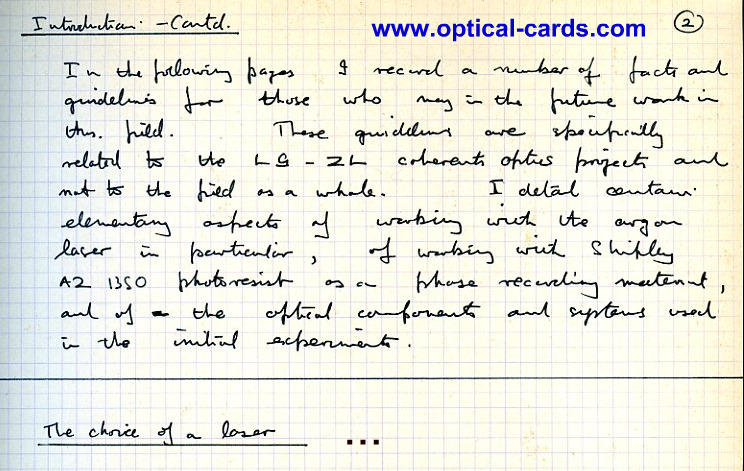 Introduction. - Contd. www.optical-cards.com 2
In the following pages I record a number of facts and
guidelines for those who may in the future work in
this field. These guidelines are specifically
related to the LG-ZL coherent optics project and
not to the field as a whole. I detail certain
elementary aspects of working with the argon
laser in particular, of working with Shipley
AZ 1350 photoresist as a phase recording material,
and of the optical components and systems used
in the initial experiments.
The choice of a laser ...